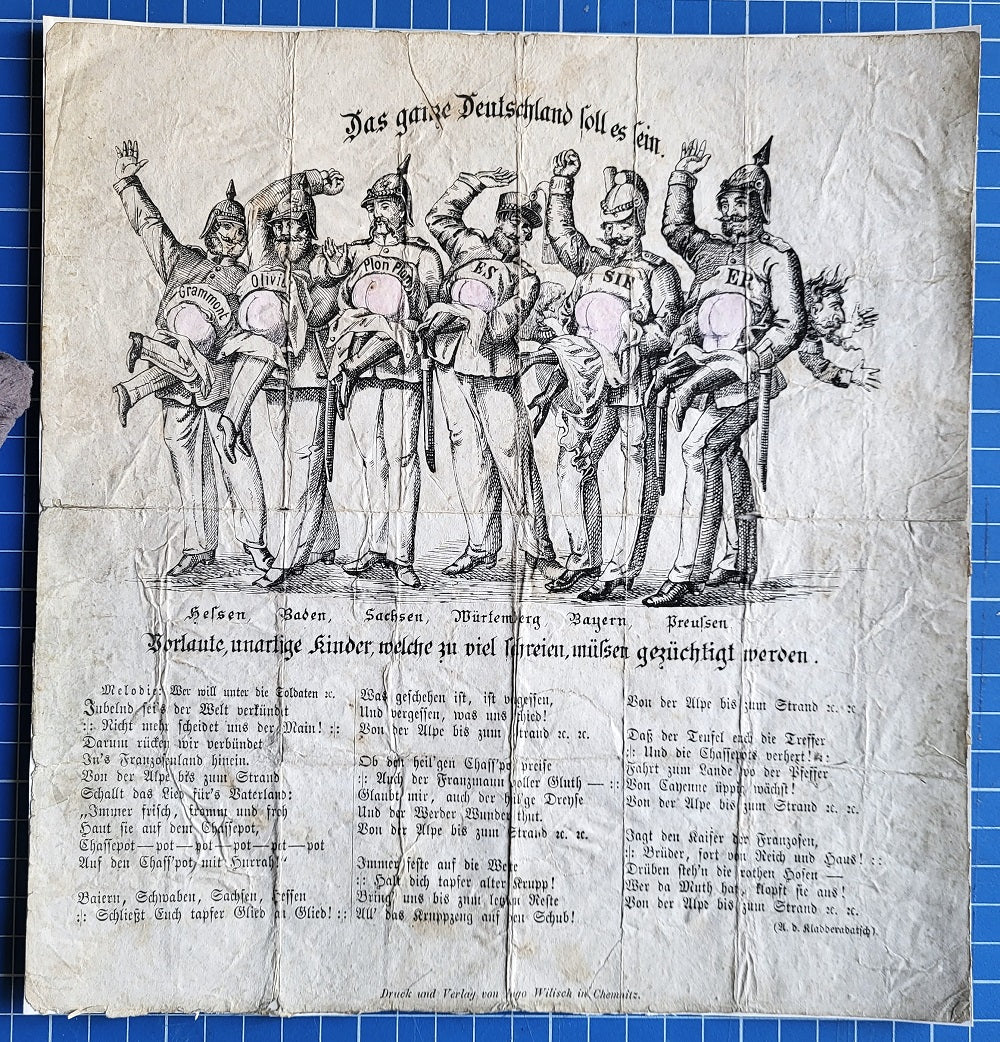 Das ganze Deutschland soll es sein.
Grammont
Olivi
Plon Plon
ES
SIR
ER
Hessen Baden, Sachsen, Würtemberg, Bayern, Preussen
Vorlaute, unartige Kinder, welche zu viel schreien, müssen gezüchtigt werden.
Melodie: Wer will unter die Soldaten ꝛc.
Jubelnd sei's der Welt verkündt
:: Nicht mehr scheidet uns der Main! ::
Darum rücken wir verbündet
In's Franzosenland hinein.
Von der Alpe bis zum Strand
Schallt das Lied für's Vaterland:
„Immer frisch, fromm und froh
Haut sie auf dem Chassepot,
Chassepot—pot—pot—pot—pot—pot
Auf den Chass'pot mit Hurrah!"
Baiern, Schwaben, Sachsen, Hessen
:: Schließt Euch tapfer Glied an Glied! ::
Was geschehen ist, ist vergessen,
Und vergessen, was uns schied!
Von der Alpe bis zum Strand ꝛc. ꝛc.
Ob den heil'gen Chass'pot preise
:: Auch der Franzmann voller Gluth — ::
Glaubt mir, auch der heil'ge Dreyse
Und der Werder Wunder thut.
Von der Alpe bis zum Strand ꝛc. ꝛc.
Immer feste auf die Weste
:: Halt dich tapfer alter Krupp!
Bring' uns bis zum letzten Reste
All' das Kruppzeug auf den Schub!
Von der Alpe bis zum Strand ꝛc. ꝛc.
Daß der Teufel euch die Treffer
:: Und die Chassepots verhext! ::
Fahrt zum Lande wo der Pfeffer
Von Cayenne üppig wächst!
Von der Alpe bis zum Strand ꝛc. ꝛc.
Jagt den Kaiser der Franzosen,
:: Brüder, fort von Reich und Haus! ::
Drüben steh'n die rothen Hosen —
Wer da Muth hat, klopft sie aus!
Von der Alpe bis zum Strand ꝛc. ꝛc.
(A. d. Kladderadatsch).
Druck und Verlag von Hugo Wilisch in Chemnitz.